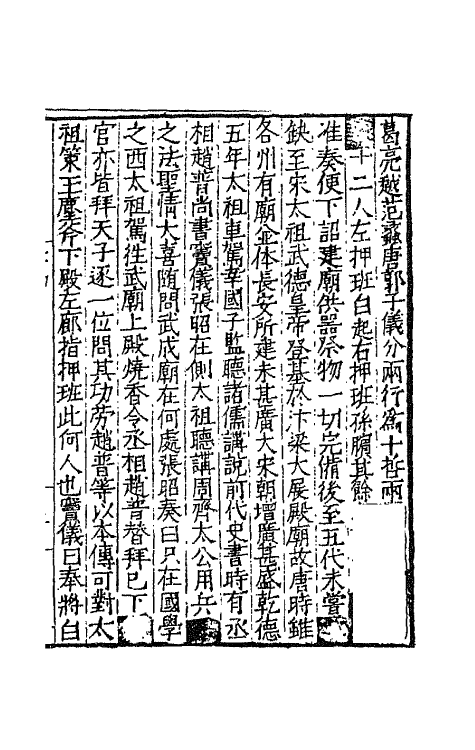 葛亮越范蠡唐郭子儀分兩行為十哲兩
十二人左押班白起右押班孫臏其餘
准奏便下詔建廟供器祭物一切完備後至五代未嘗
缺至宋太祖武德皇帝登基於汴梁大展殿廟故唐時雖
各州有廟並体長安所建未甚廣大宋朝增廣甚盛乾德
五年太祖車駕幸國子監聽諸儒講說前代史書時有丞
相趙普尚書竇儀張昭在側太祖聽講周齊太公用兵
之法聖情大喜随問武成廟在何處張昭奏曰只在國學
之西太祖駕往武廟上殿燒香令丞相趙普替拜已下
官亦皆拜天子逐一位問其功劳趙普等以本傳可對太
祖策玉麈斧下殿左廊指押班此何人也竇儀曰奉將白